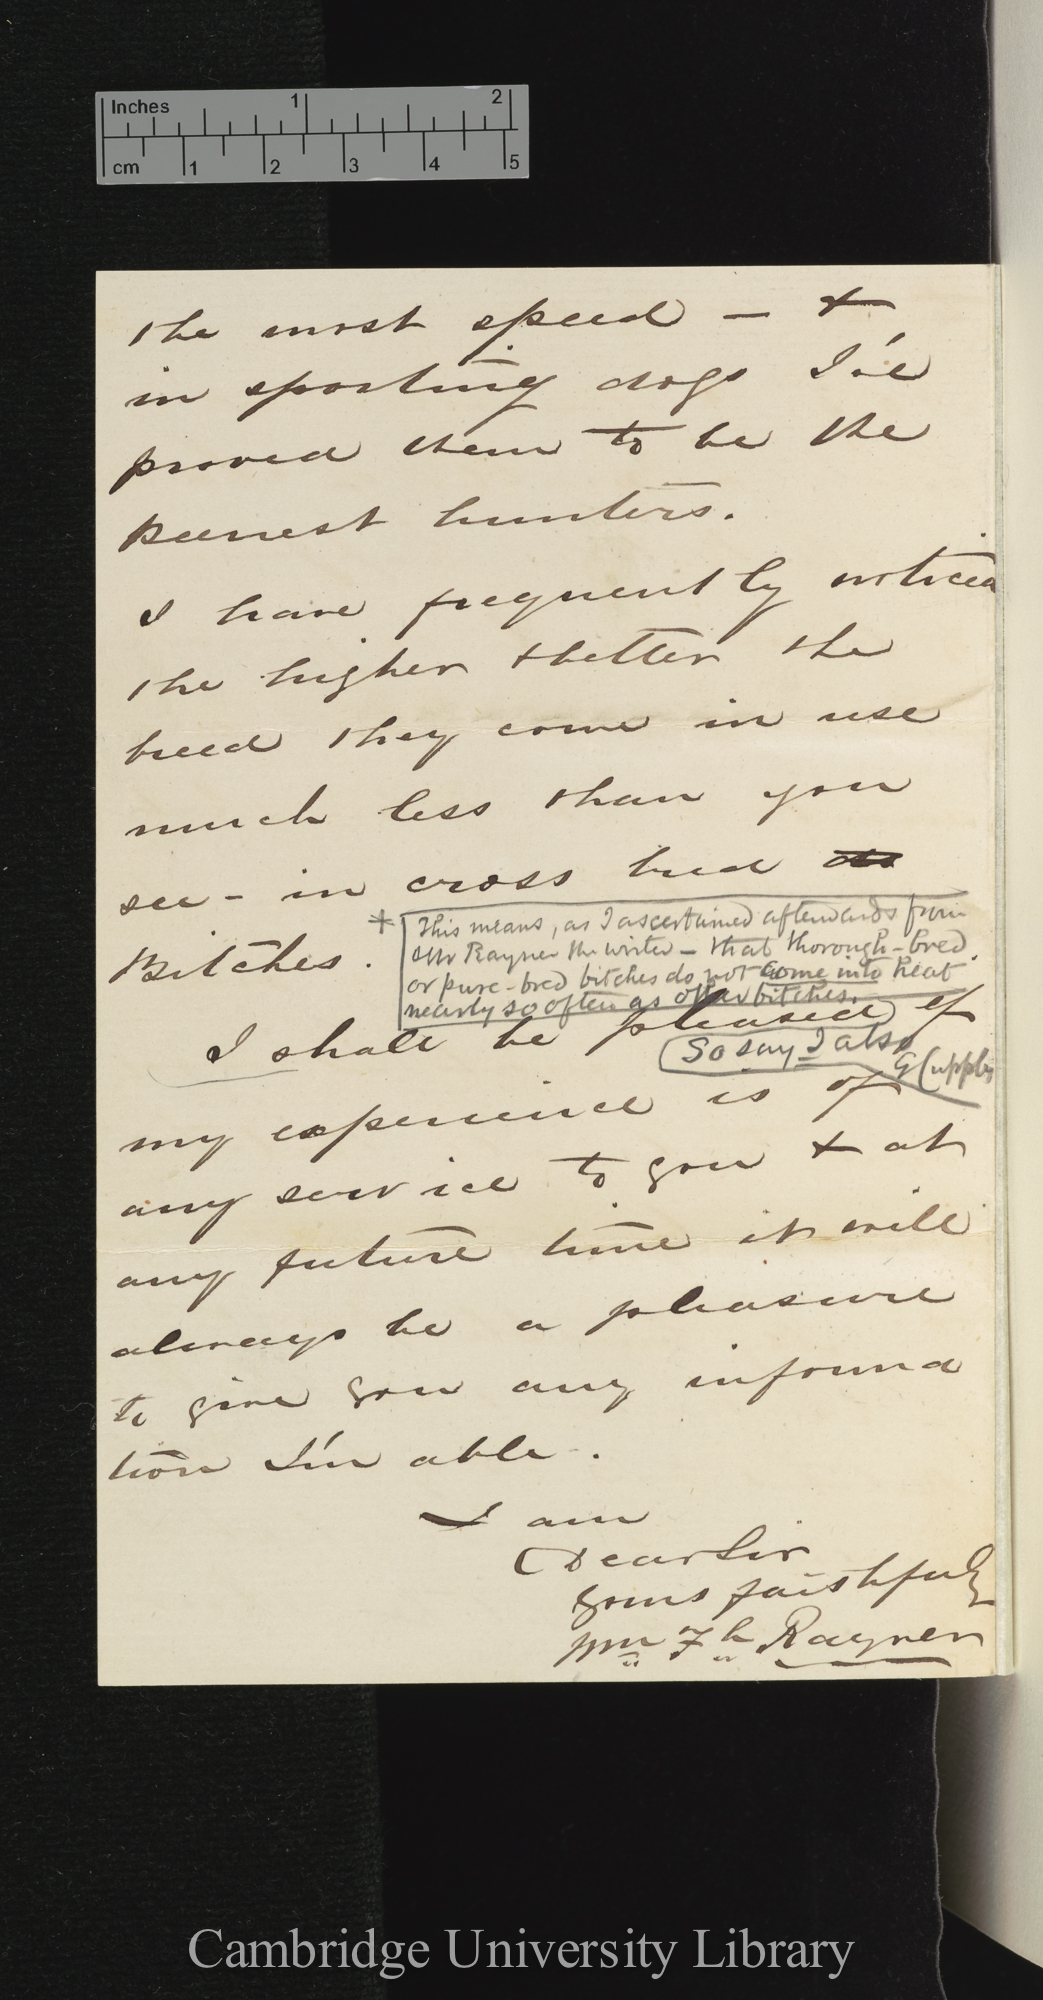 Inches 1 2
cm 1 2 3 4 5
the most speed – &
in sporting dogs I've
proved them to be the
keenest hunters.
I have frequently noticed
the higher & better the
breed they come in use
much less than you
see - in cross bred
Bitches.
+ This means, as I ascertained afterwards from
Mr Rayner the writer – that thorough-bred
or pure-bred bitches do not come into heat
nearly so often as other bitches.
I shall be pleased if
So say I also
G Cupples
my experience is of
any service to you & at
any future time it will
always be a pleasure
to give you any informa
tion I'm able.
I am
Dear Sir
yours faithfully
Wm Fk Rayner
Cambridge University Library